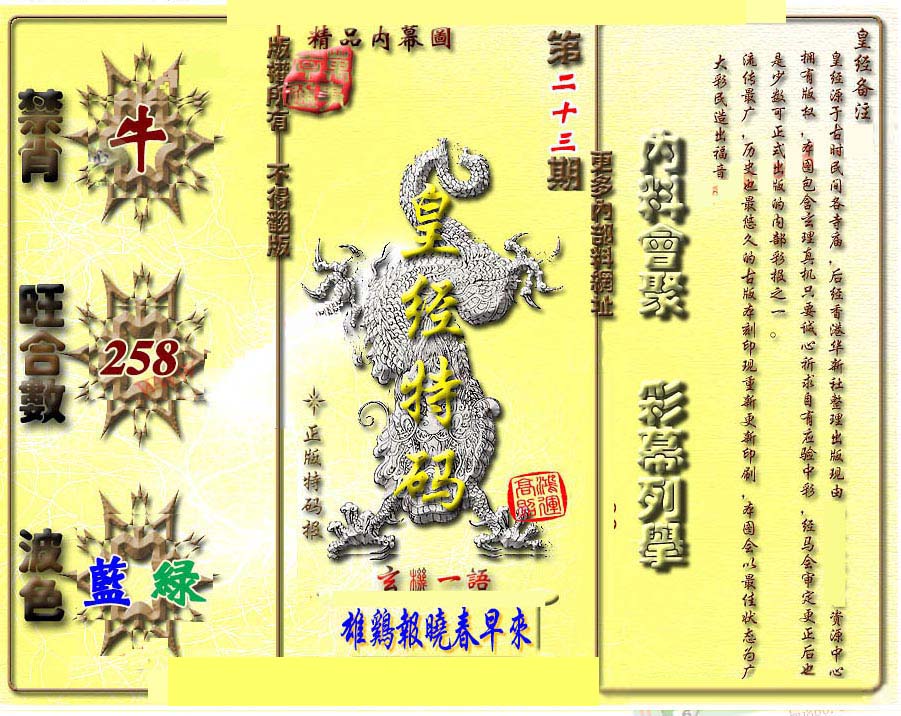 精品内幕圖
版權所有 不得翻版
第二十三期
更多內部料網址
禁肖
牛
旺合數
258
波色
藍 綠
皇经特码
正版特码报
鴻運高照
玄機一語
雄鷄報曉春早來
內料會聚 彩幕列擧
皇经备注
皇经源于古时民间各寺庙,后经香港华新社整理出版现由 资源中心
拥有版权,本图包含玄理真机只要诚心祈求自有应验中彩,经马会审定更正后也
是少数可正式出版的内部彩报之一。
流传最广,历史也最悠久的古版本刻印现重新更新印刷,本图会以最佳状态为广
大彩民造出福音